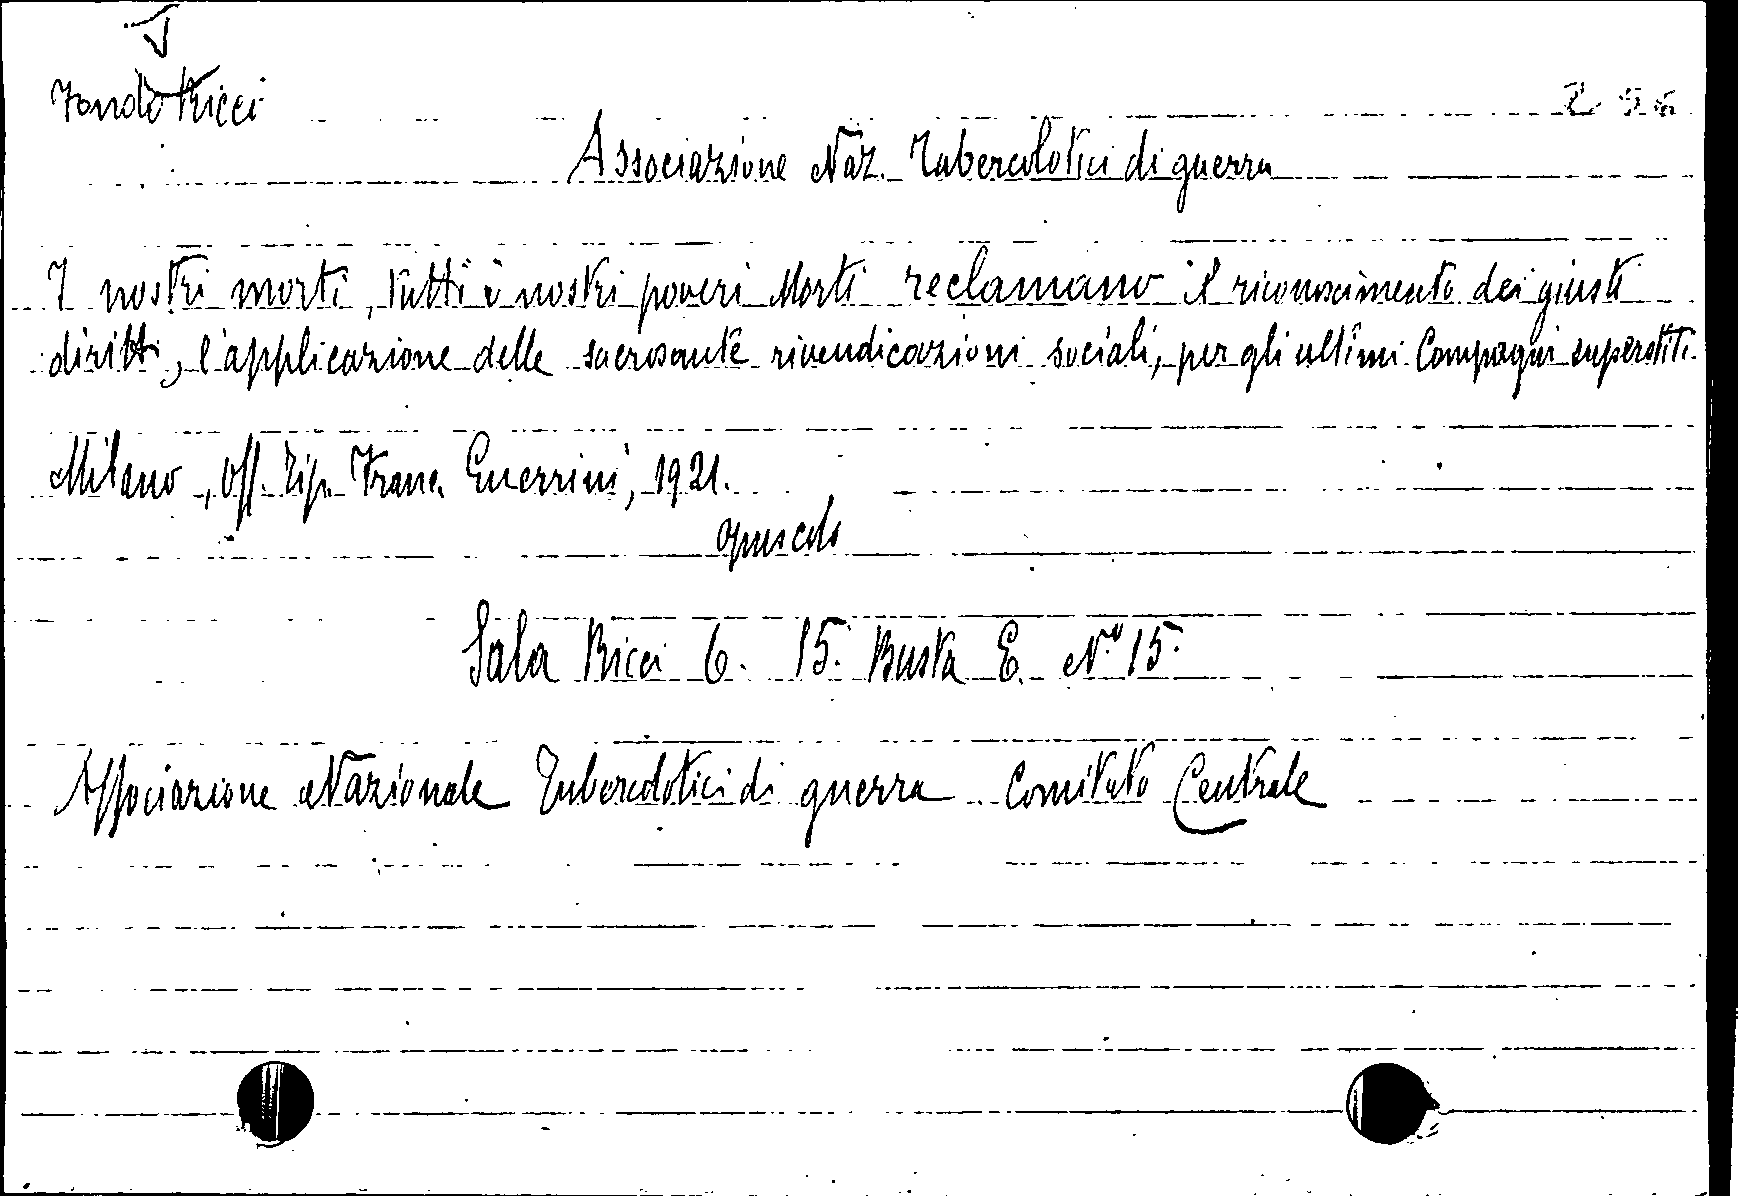 Fondo Ricci
Associazione Naz. Tubercolotici di guerra
I nostri morti, tutti i nostri poveri Morti reclamano il riconoscimento dei giusti
diritti, l'applicazione delle sacrosante rivendicazioni sociali, per gli ultimi Compagni superstiti.
Milano, Off. Tip. Franc. Guerrini, 1921.
opuscolo
Sala Ricci 6. 15. Busta E. N.º 15.
Associazione Nazionale Tubercolotici di guerra Comitato Centrale